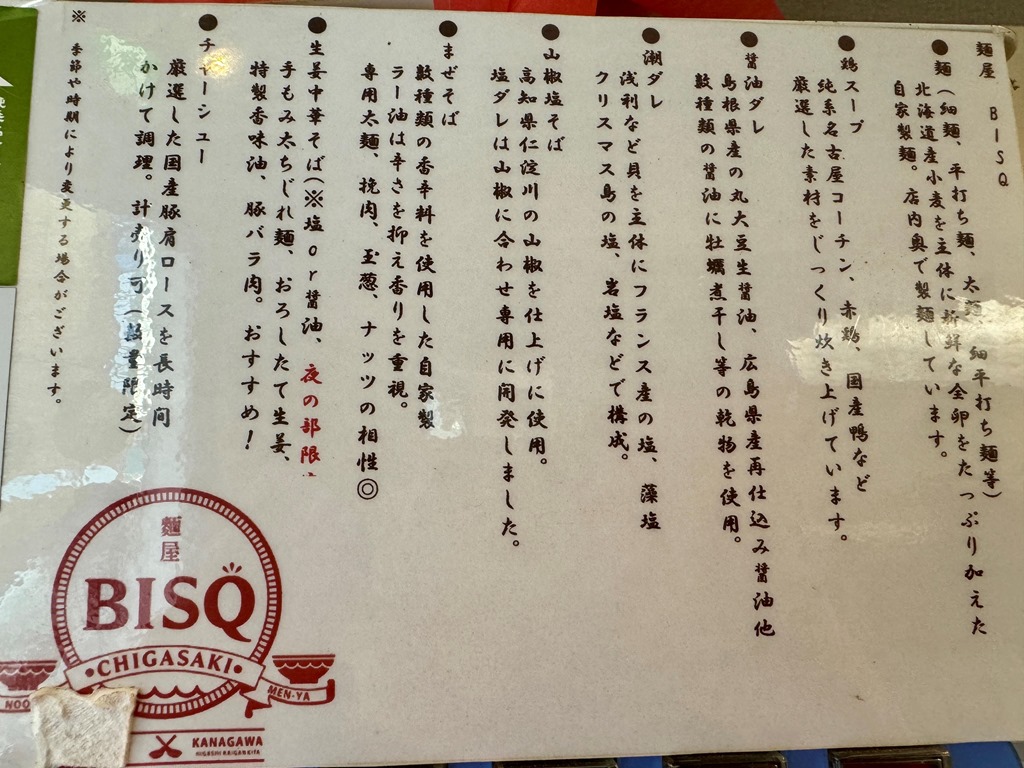 麺屋 BISQ
●麺(細麺、平打ち麺、太麺、細平打ち麺等)
北海道産小麦を主体に新鮮な全卵をたっぷり加えた
自家製麺。店内奥で製麺しています。
●鶏スープ
純系名古屋コーチン、赤鶏、国産鴨など
厳選した素材をじっくり炊き上げています。
●醤油ダレ
島根県産の丸大豆生醤油、広島県産再仕込み醤油他
数種類の醤油に牡蠣煮干し等の乾物を使用。
●潮ダレ
浅利など貝を主体にフランス産の塩、藻塩
クリスマス島の塩、岩塩などで構成。
●山椒塩そば
高知県仁淀川の山椒を仕上げに使用。
塩ダレは山椒に合わせ専用に開発しました。
●まぜそば
数種類の香辛料を使用した自家製
ラー油は辛さを抑え香りを重視。
専用太麺、挽肉、玉葱、ナッツの相性◎
●生姜中華そば(※塩or醤油、夜の部限
手もみ太ちぢれ麺、おろしたて生姜、
特製香味油、豚バラ肉。おすすめ!
●チャーシュー
厳選した国産豚肩ロースを長時間
かけて調理。計売り可(数量限定)
※季節や時期により変更する場合がございます。
麺屋
BISQ
・CHIGASAKI・
NOO
MEN-YA
KANAGAWA
HIGASHI KAIGAN KITA